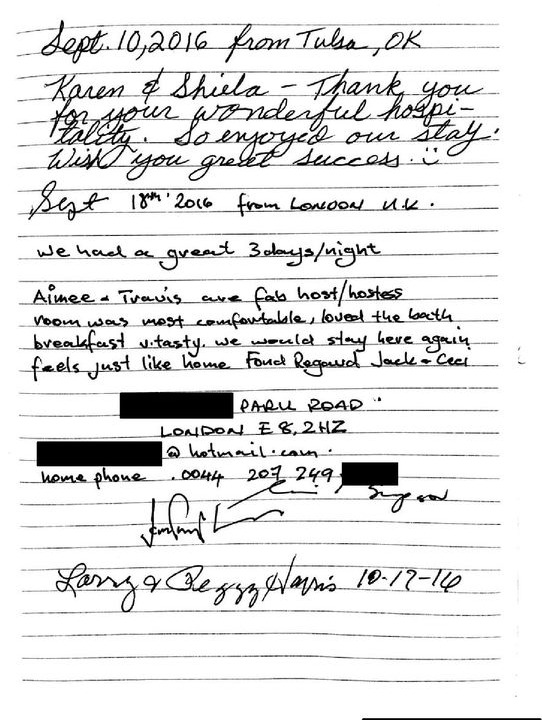 Sept. 10, 2016 from Tulsa, OK
Karen & Shiela - Thank you
for your wonderful hospi-
tality. So enjoyed our stay.
Wish you great success.
Sept 18th 2016 from LONDON U.K.
we had a great 3days/night
Aimee & Travis are fab host/hostess
room was most comfortable, loved the bath
breakfast v.tasty. we would stay here again
feels just like home Fond Regard Jack & Ceci
PARK ROAD
LONDON E8, 2HZ
@ hotmail.com.
home phone .0044 207 249
Larry & Peggy Harris 10-17-16